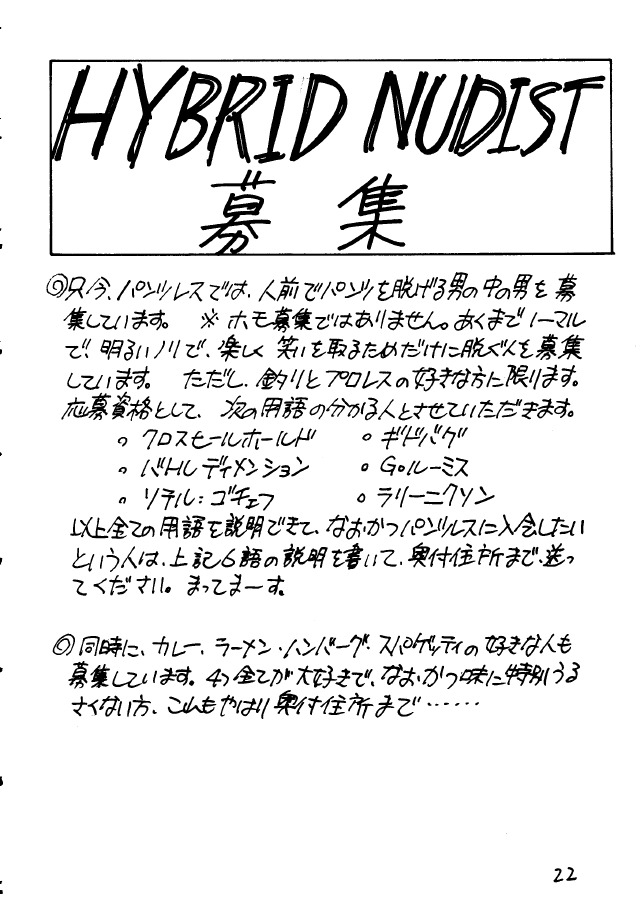 HYBRID NUDIST
募集
◎只今、パンツレスでは、人前でパンツを脱げる男の中の男を募
集しています。 ※ホモ募集ではありません。あくまでノーマル
で、明るいノリで、楽しく笑いを取るためだけに脱ぐ人を募集
しています。 ただし、釣りとプロレスの好きな方に限ります。
応募資格として、次の用語の分かる人とさせていただきます。
。クロスヒールホールド 。ギドバグ
。バトルディメンション 。Goルーミス
。リテル:ゴチェフ 。ラリーニクソン
以上全ての用語を説明できて、なおかつパンツレスに入会したい
という人は、上記6語の説明を書いて、奥付住所まで、送っ
てください。まってまーす。
◎同時に、カレー、ラーメン・ハンバーグ・スパゲッティの好きな人も
募集しています。4つ全てが大好きで、なおかつ味に特別うる
さくない方、こんもやはり奥付住所まで……
22